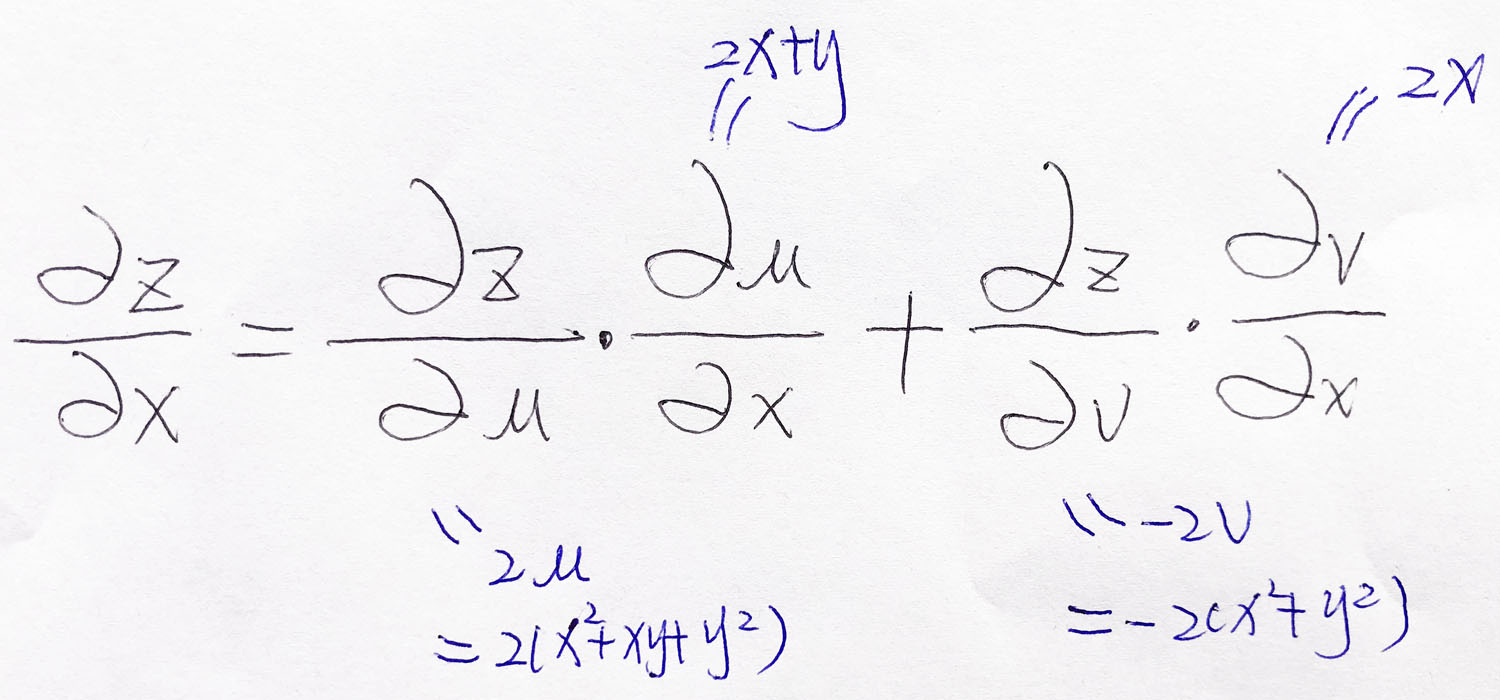 2x+y
〃 2x
∂z/∂x = ∂z/∂μ · ∂μ/∂x + ∂z/∂v · ∂v/∂x
〃 2μ
= 2(x²+xy+y²)
〃 -2v
= -2(x²+y²)